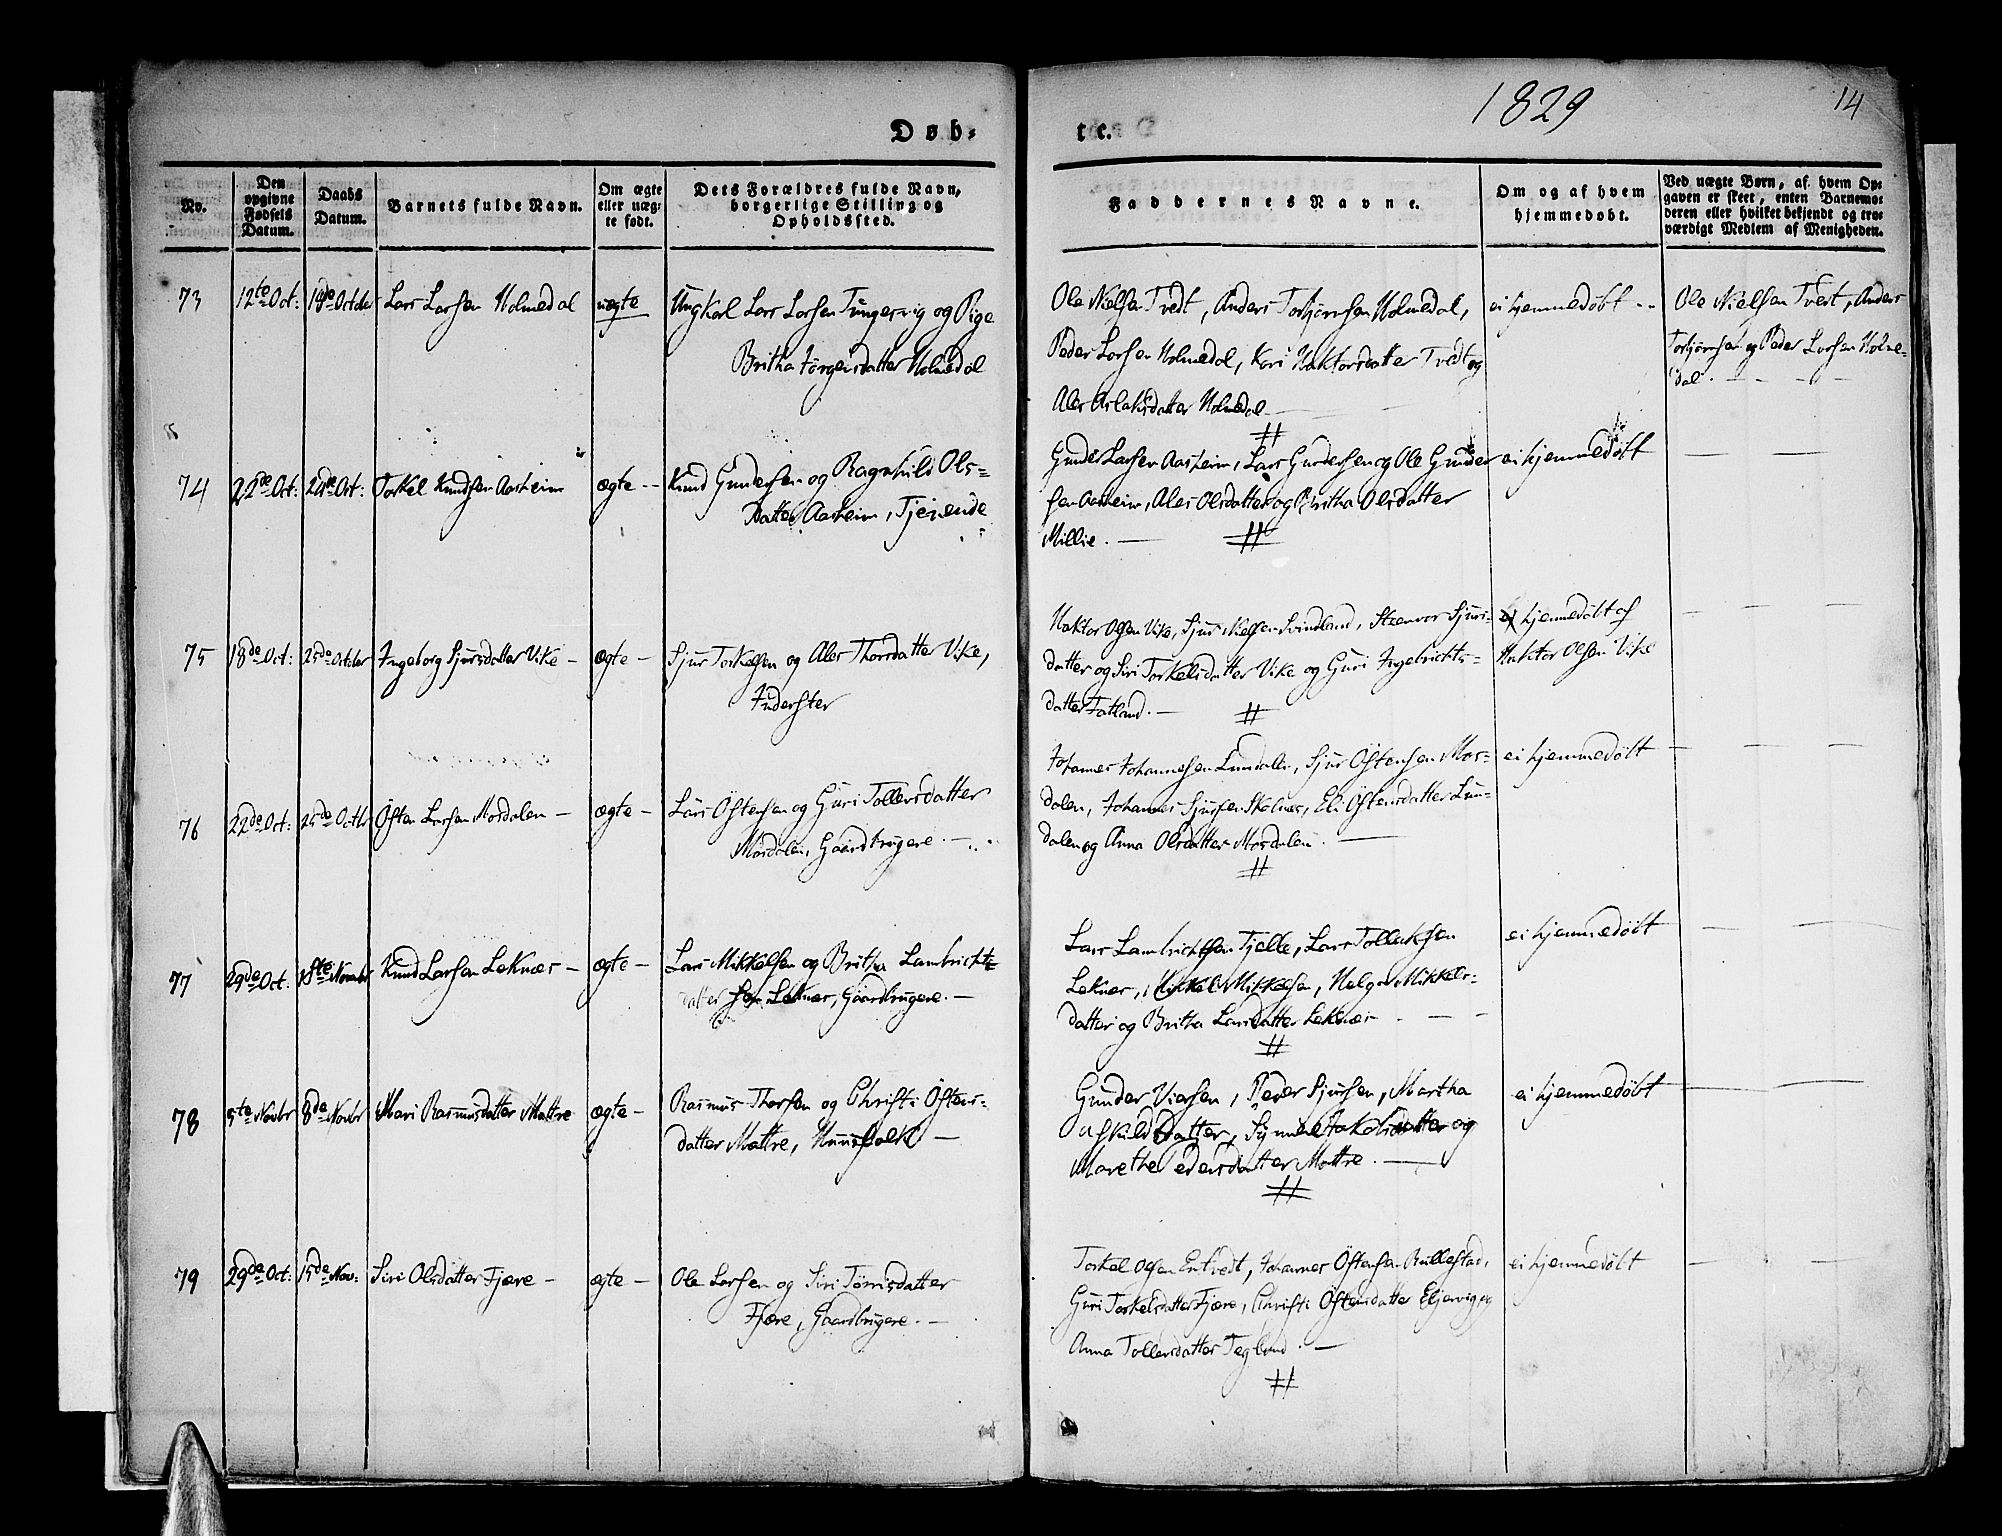 1829
14
Døb-
te.
No.
Den opgivne Fødsels Datum.
Daabs Datum.
Barnets fulde Navn.
Om ægte eller uæg-te født.
Dets Forældres fulde Navn, borgerlige Stilling og Opholdssted.
Faddernes Navne.
Om og af hvem hjemmedøbt.
Ved uægte Børn, af hvem Op-gaven er skeet, enten Barnemo-deren eller hvilket bekjendt og tro-værdigt Medlem af Menigheden.
73
12te Oct:
18de October
Lars Larsen Holmedal
uægte
Ungkarl Lars Larsen Tungesvig og Pige
Britha Jørgensdatter Holmedal
Ole Nielsen Tvedt, Anders Torbjørnsen Holmedal,
Peder Larsen Holmedal, Kari Haktorsdatter Tvedt og
Ales Aslaksdatter Holmedal
ei hjemmedøbt
Ole Nielsen Tvedt, Anders
Torbjørnsen og Peder Larsen Holme-
dal.
74
22de Oct:
Oct:
Torkel Knudsen Aasheim
ægte
Knud Gundersen og Ragnhild Ols-
datter Aasheim, Tjenende
Gunder Larsen Aasheim, Lars Gundersen og Ole Gunder
sen Aasheim, Ales Olsdatter og Britha Olsdatter
Millie.
ei hjemmedøbt
75
18de Oct:
25de October
Ingeborg Sjursdatter Vike
ægte
Sjur Torkelsen og Ales Thorsdatter Vike,
Inderster
Haktor Olsen Vike, Sjur Nielsen Svindland, Steenvor Sjurs-
datter og Siri Torkelsdatter Vike og Guri Ingebrichts-
datter Fatland.
hjemmedøbt af
Haktor Olsen Vike
76
22de Oct:
25de Octbr
Østen Larsen Mosdalen
ægte
Lars Østensen og Guri Tollevsdatter
Mosdalen, Gaardbrugere.
Johannes Johannesen Lundalen, Sjur Østensen Mos-
dalen, Johannes Sjursen Skolnæs, Eli Østensdatter Lun-
dalen og Anna Olsdatter Mosdalen.
ei hjemmedøbt
77
29de Oct:
Novbr
Knud Larsen Leknæs
ægte
Lars Mikkelsen og Britha Lambrichts
datter Leknæs, Gaardbrugere.
Lars Lambrichtsen Tjelle, Lars Tollaksen
Leknæs, Mikkel Mikkelsen, Helga Mikkels-
datter og Britha Larsdatter Leknæs
ei hjemmedøbt
78
5te Novbr
8de Novbr
Mari Rasmusdatter Mattre
ægte
Rasmus Thorsen og Christi Østens-
datter Mattre, Huusfolk
Gunder Viersen, Peder Sjursen, Martha
Askildsdatter, Synneve Jakobsdatter og
Marethe Pedersdatter Mattre.
ei hjemmedøbt
79
29de Oct:
15de Nov:
Siri Olsdatter Fjære
ægte
Ole Larsen og Siri Tørrisdatter
Fjære, Gaardbrugere.
Torkel Olsen Entvedt, Johannes Østensen Rullestad,
Guri Torkelsdatter Fjære, Christi Østensdatter Eljervig og
Anna Tollevsdatter Tegland.
ei hjemmedøbt